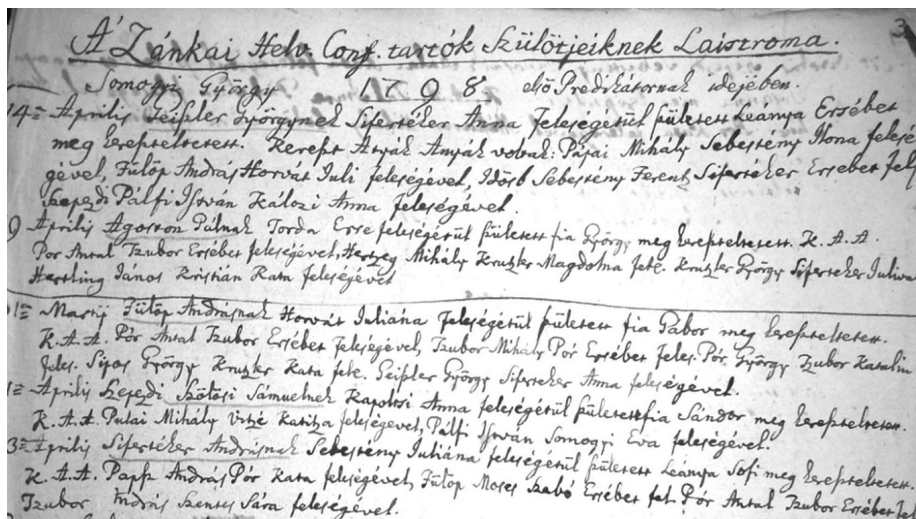 3
A' Zánkai Helv. Conf. tartók Szülötjeiknek Laistroma.
Somogyi György 1798 első Predikátornak idejében.
14= Aprilis Geisler Györgynek Sifertéker Anna Feleségétül született Leánya Ersébet
meg kereszteltetett. Kereszt Atyák Anyák voltak: Pájai Mihály Sebestény Ilona felesé
gével, Fülöp András Horvát Juli feleségével, Idősb Sebestény Ferentz Sifertéker Ersebet fel
Szepezdi Pálfi István Kálozi Anna feleségével.
9 Aprilis Agoston Pálnak Torda Erse feleségétül született fia György meg kereszteltetett. K. A. A.
Por Antal Tzubor Ersébet feleségével, Hertzeg Mihály Krutzler Magdolna fele. Krutzler György Siferteker Juliana
Hertling János Kristián Kata feleségével
1= Martij Fülöp Andrásnak Horvát Juliána feleségétül született fia Gábor meg kereszteltetett.
K. A. A. Pór Antal Tzubor Ersébet feleségével, Tzubor Mihály Pór Ersébet feles. Pór György Tzubor Katalin
feles. Sipos György Krutzler Kata fele. Geisler György Siferteker Anna feleségével.
1= Aprilis Szepezdi Szőlősi Sámuelnek Kapoltsi Anna feleségétül született fia Sándor meg kereszteltetett.
K. A. A. Putai Mihály Katitza feleségével, Pálfi István Somogyi Eva feleségével.
3= Aprilis Sifertéker Andrásnak Sebestény Juliána feleségétül született Leánya Sofi meg kereszteltetett.
K. A. A. Pap András Pór Kata feleségével, Fülöp Moses Szabó Ersébet fel. Pór Antal Tzubor Ersébet fel
Tzubor András Szentes Sára feleségével.